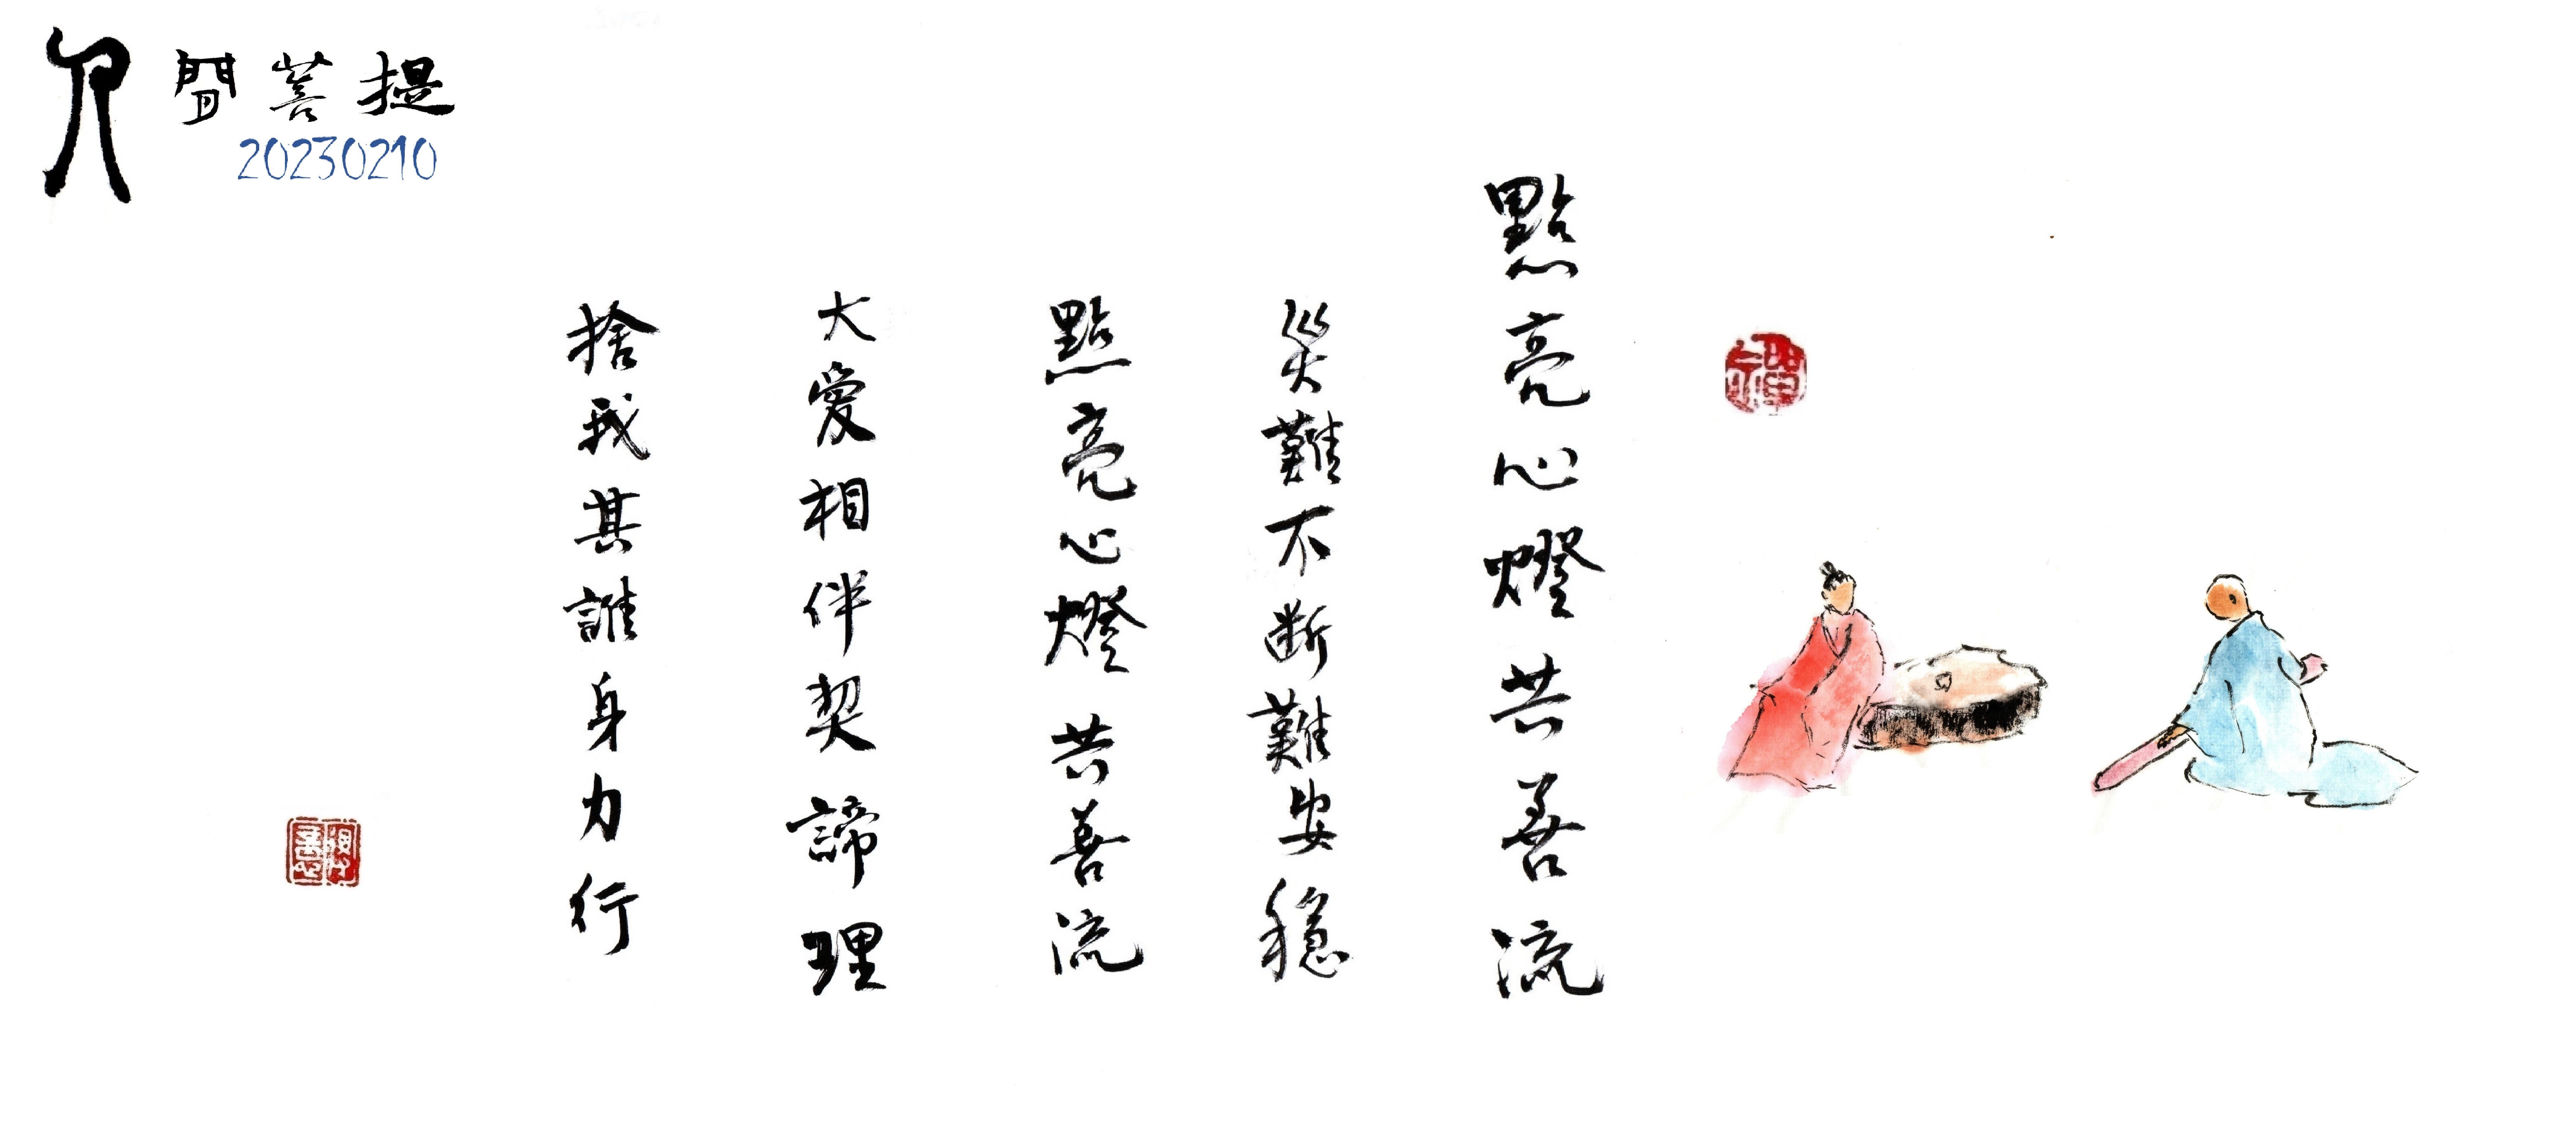 人間菩提
20230210
點亮心燈共善流
災難不斷難安穩
點亮心燈共善流
大愛相伴契諦理
捨我其誰身力行